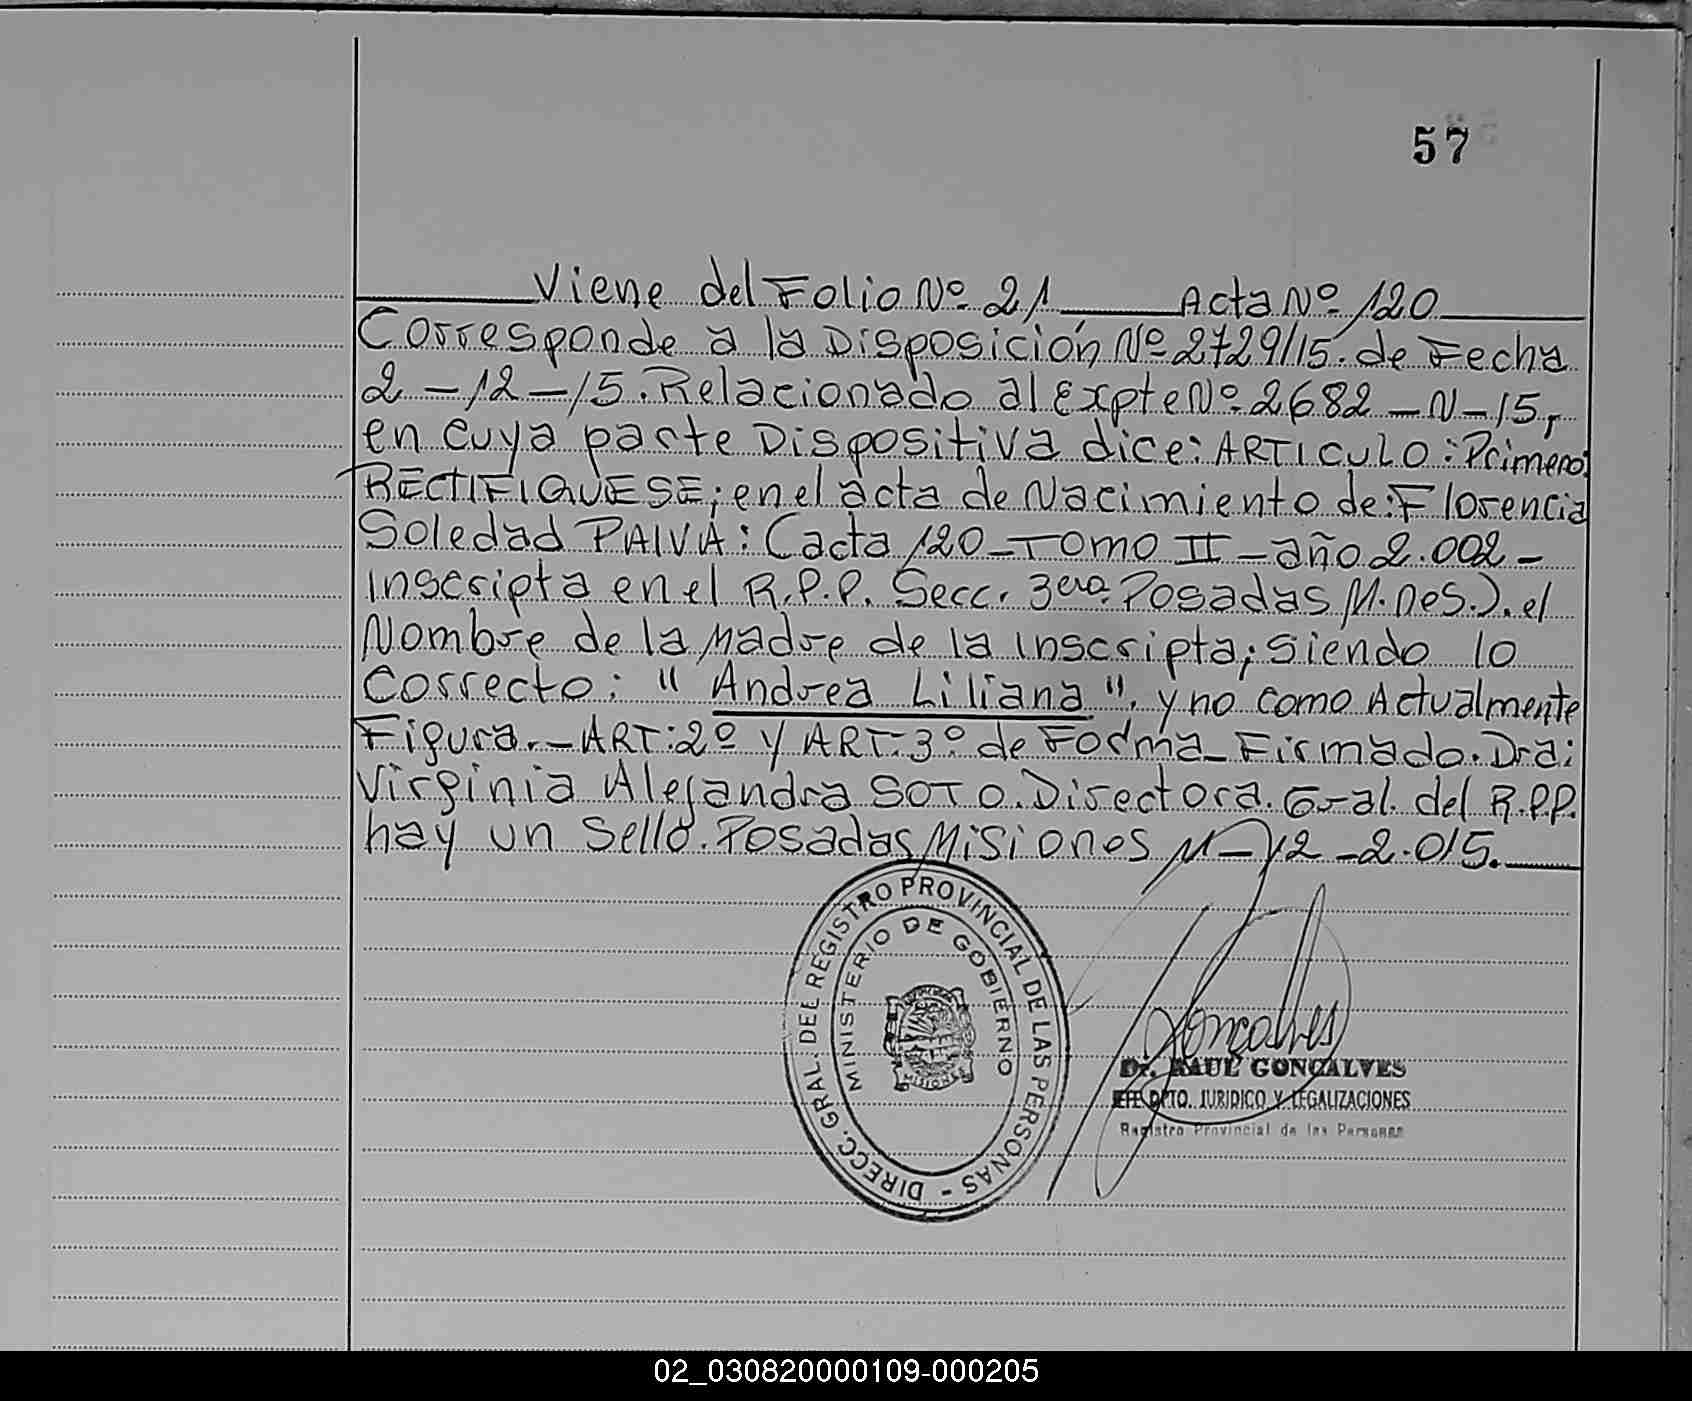 57
Viene del Folio Nº 21 Acta Nº 120
Corresponde a la Disposición Nº 2729/15. de Fecha
2-12-15. Relacionado al Expte Nº 2682-N-15,
en cuya parte Dispositiva dice: ARTICULO: Primero:
RECTIFIQUESE; en el acta de Nacimiento de: Florencia
Soledad PAIVA: (acta 120 - Tomo II - año 2.002 -
Inscripta en el R.P.P. Secc. 3era. Posadas M.nes.). el
Nombre de la Madre de la inscripta; siendo lo
Correcto: "Andrea Liliana". y no como Actualmente
Figura.- ART: 2º y ART: 3º de Forma - Firmado. Dra:
Virginia Alejandra SOTO. Directora. Gral. del R.P.P.
hay un Sello. Posadas Misiones 11-12-2.015.
DIRECC. GRAL. DEL REGISTRO PROVINCIAL DE LAS PERSONAS -
MINISTERIO DE GOBIERNO
MISIONES
Gonçalves
Dr. RAUL GONCALVES
JEFE DPTO. JURIDICO Y LEGALIZACIONES
Registro Provincial de las Personas
02_030820000109-000205